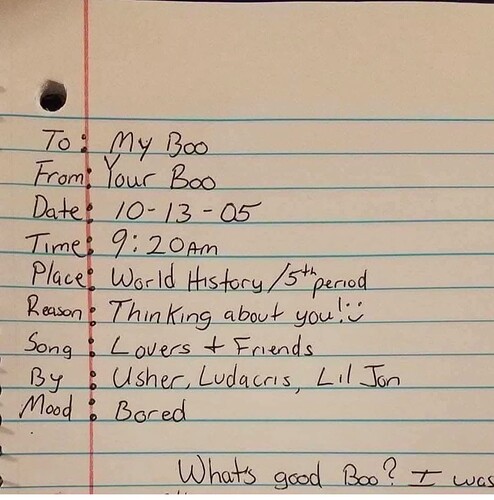 To: My Boo
From: Your Boo
Date: 10-13-05
Time: 9:20AM
Place: World History/5th period
Reason: Thinking about you! :)
Song: Lovers + Friends
By: Usher, Ludacris, Lil Jon
Mood: Bored
What's good Boo? I was